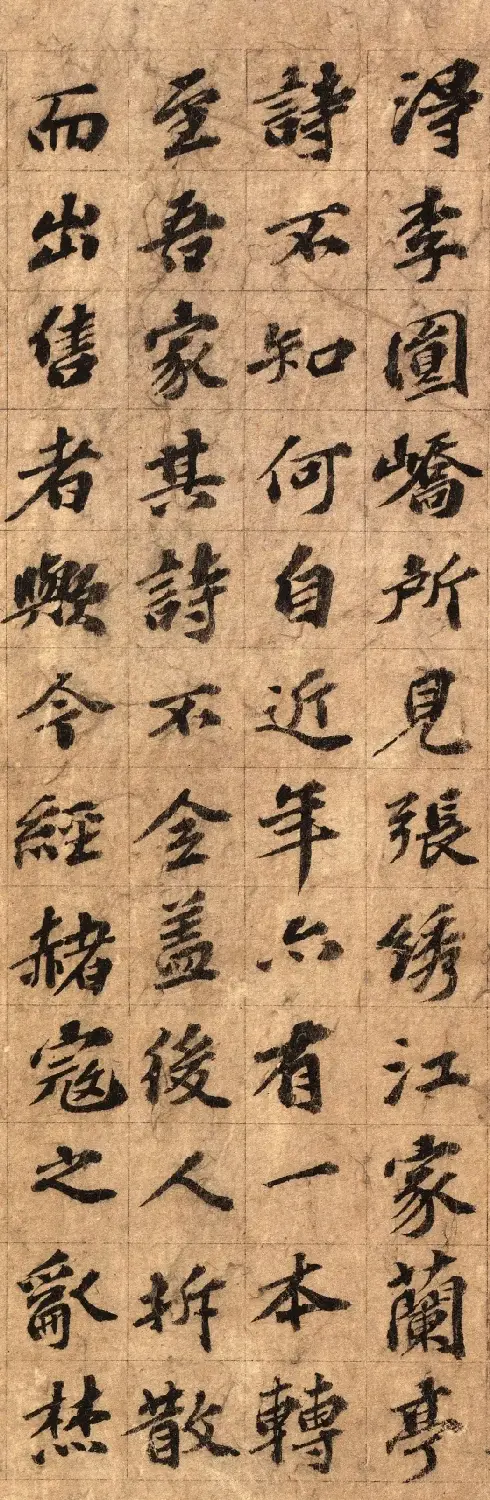 得李圓嶠所見張綉江家蘭亭
詩不知何自近年亦有一本轉
至吾家其詩不全盖後人拆散
而出售者歟今經赭寇之亂焚